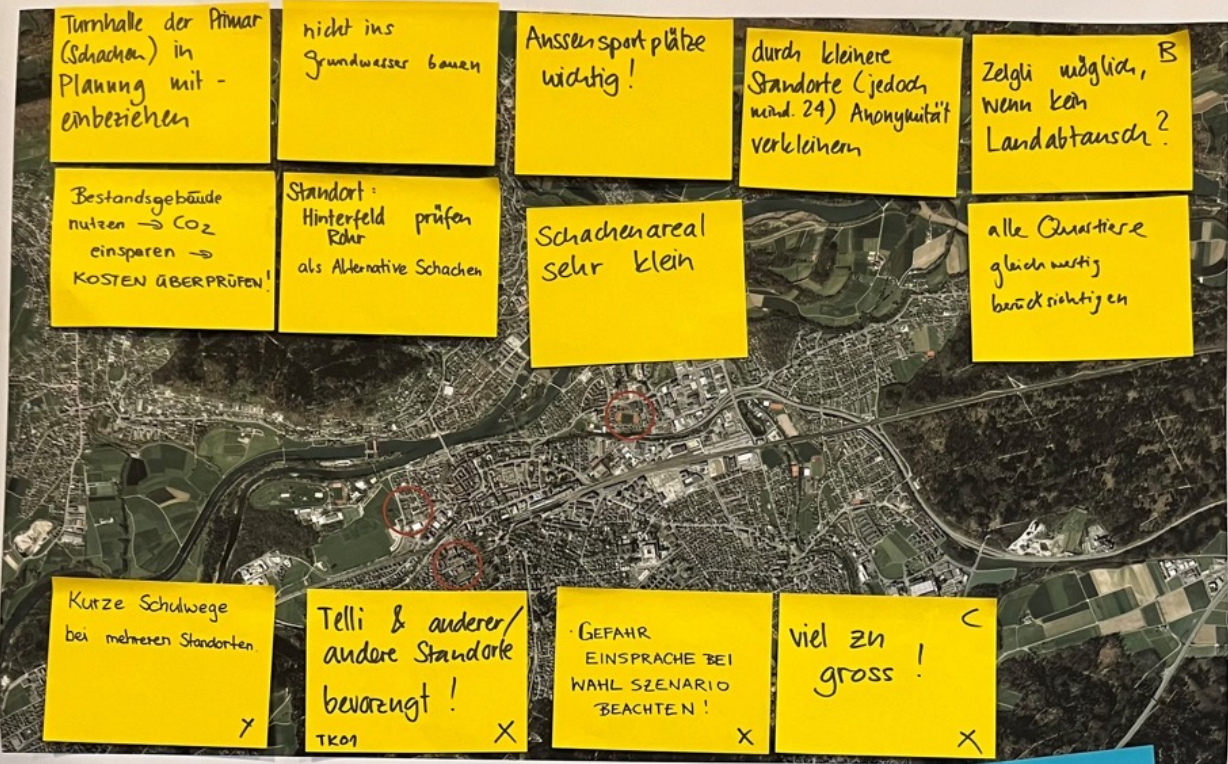 Turnhalle der Primar
(Schachen) in
Planung mit-
einbeziehen
nicht ins
Grundwasser bauen
Aussensportplätze
wichtig!
durch kleinere
Standorte (jedoch
mind. 24) Anonymität
verkleinern
B
Zelgli möglich,
wenn kein
Landabtausch?
Bestandsgebäude
nutzen → CO2
einsparen →
KOSTEN ÜBERPRÜFEN!
Standort:
Hinterfeld prüfen
Rohr
als Alternative Schachen
Schachenareal
sehr klein
alle Quartiere
gleichwertig
berücksichtigen
Kurze Schulwege
bei mehreren Standorten.
Y
Telli & anderer/
andere Standorte
bevorzugt!
TK01 X
· GEFAHR
EINSPRACHE BEI
WAHL SZENARIO
BEACHTEN!
X
C
viel zu
gross!
X